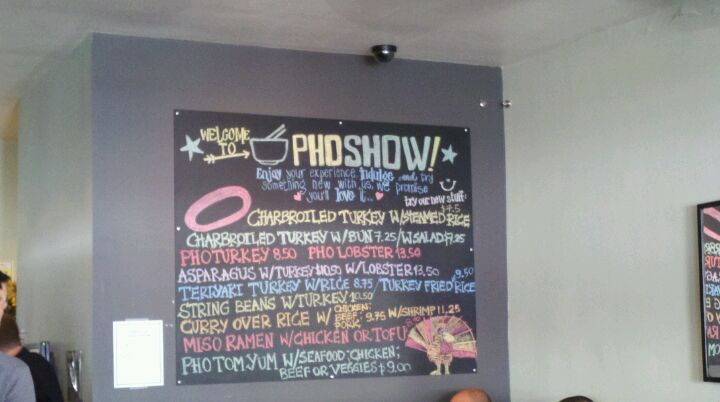 WELCOME TO PHO SHOW!
Enjoy your experience, Indulge and try
something new with us, we promise
you'll love it...
try our new stuff:
CHARBROILED TURKEY W/STEAMED RICE
CHARBROILED TURKEY W/BUN 7.25/W.SALAD $7.25
PHO TURKEY 8.50 PHO LOBSTER 13.50
ASPARAGUS W/TURKEY $10.50 W/LOBSTER 13.50
TERIYAKI TURKEY W/RICE 8.75 TURKEY FRIED RICE 9.50
STRING BEANS W/TURKEY 10.50
CURRY OVER RICE W/ CHICKEN; BEEF; PORK 9.75 W/SHRIMP 11.25
MISO RAMEN W/CHICKEN OR TOFU
PHO TOM.YUM W/SEAFOOD; CHICKEN;
BEEF OR VEGGIES $9.00